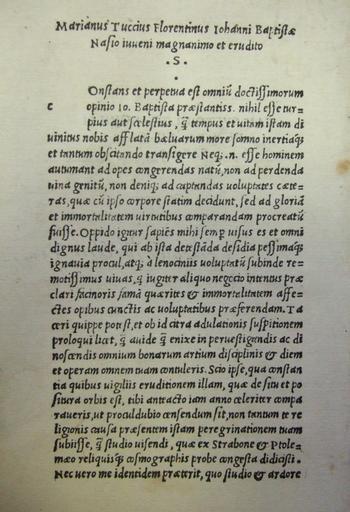 Marianus Tuccius Florentinus Iohanni Baptistæ
Nasio iuveni magnanimo et erudito
.S.
Onstans et perpetua est omniũ doctissimorum
c opinio Io. Baptista præstantiss. nihil esse tur-
pius aut scelestius, q̃ tempus et uitam istam di
uinitus nobis afflatã bæluarum more somno inertiaq́;
et tantum obscitando transigere Neq;.n. esse hominem
autumant ad opes congerendas natũ, non ad perdenda
uina genitũ, non deniq; ad captandas uoluptates cæte-
ras, quæ cũ ipso corpore statim decidunt, sed ad gloriã
et immortalitatem uirtutibus comparandam procreatũ
fuisse. Oppido igitur sapiẽs mihi semp̱ uisus es et omni
dignus laude, qui ab ista detestãda desidia pessimaq́;
ignauia procul, atq; à lenociniis uoluptatũ subinde re-
motissimus uiuas, q̃ iugiter aliquo negocio intentus præ
clari facinoris famã quærites & immortalitatem affe-
ctes opibus cunctis ac uoluptatibus præferendam. Ta
ceri quippe non p̱t, et ob id citra adulationis suspitionem
proloqui licat, q̃ auide q̃ enixe in peruestigandis ac di
noscendis omnium bonarum artium disciplinis & diem
et operam omnem tuam contuleris. Scio ipse, qua constan
tia quibus uigiliis eruditionem illam, quæ de situ et po
situra orbis est, tibi antracto iam anno celeriter compa
raueris, ut proculdubio censendum sit, non tantum te re
ligionis causa præsentem istam peregrinationem tuam
subiisse, q̃ studio uisendi, quæ ex Strabone & Ptole-
mæo reliquisq́; cosmographis probe congesta didicisti.
Nec uero me identidem præterit, quo studio & ardore